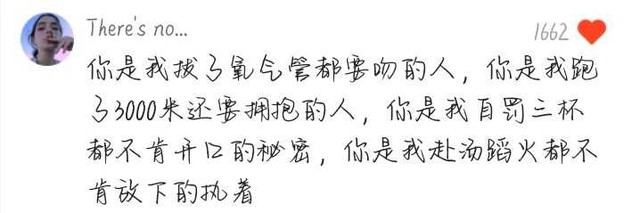 There's no...
1662
你是我拔了氧气管都要吻的人，你是我跑
了3000米还要拥抱的人，你是我自罚三杯
都不肯开口的秘密，你是我赴汤蹈火都不
肯放下的执着